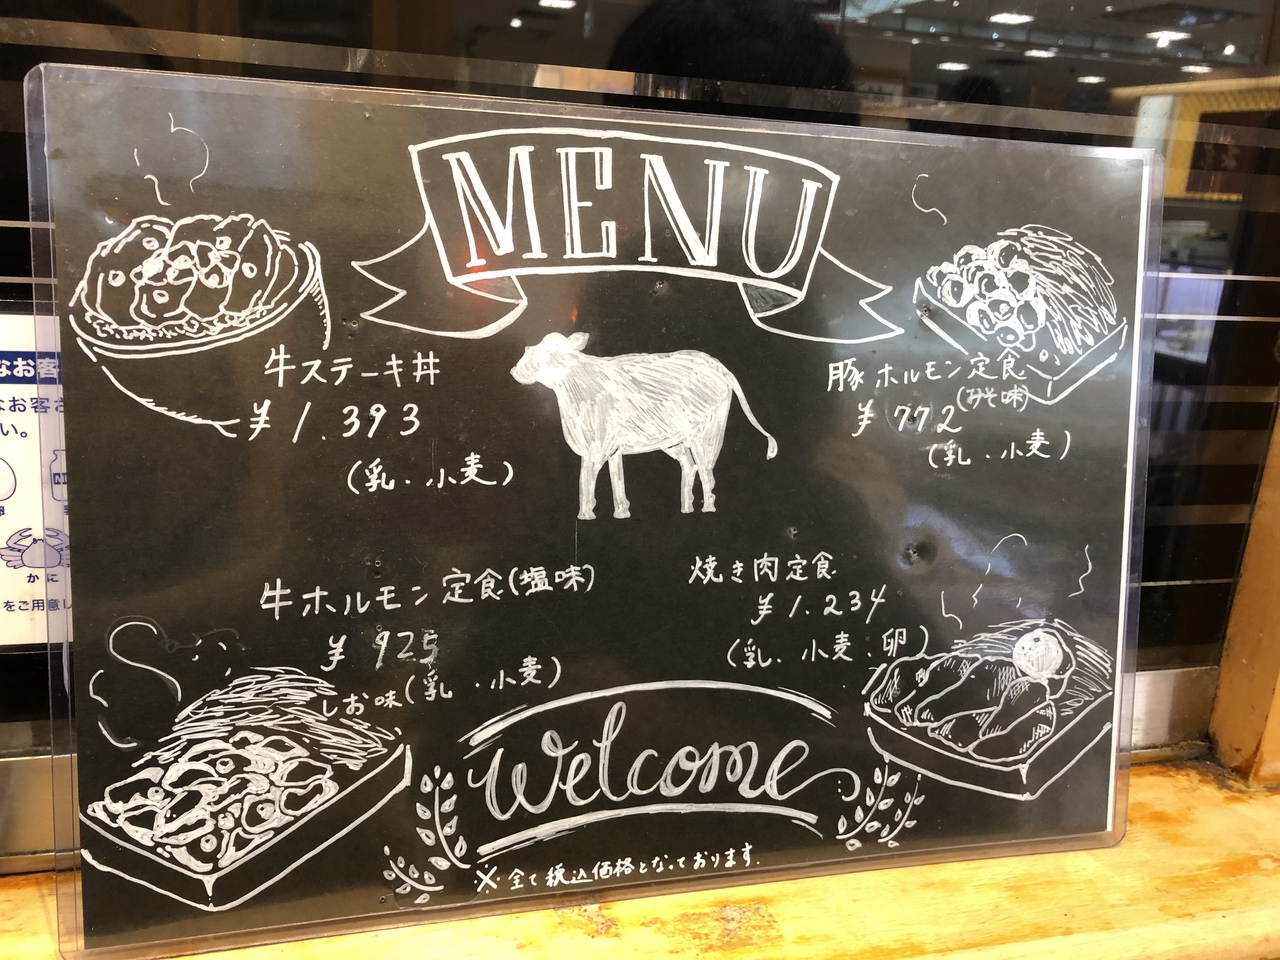 MENU
牛ステーキ丼
¥1.393
(乳・小麦)
豚ホルモン定食
(みそ味)
¥772
(乳・小麦)
牛ホルモン定食(塩味)
¥925
しお味(乳・小麦)
焼き肉定食
¥1.234
(乳、小麦、卵)
Welcome
※全て税込価格となっております。
なお客
なお客さ
い。
卵
かに
をご用意し